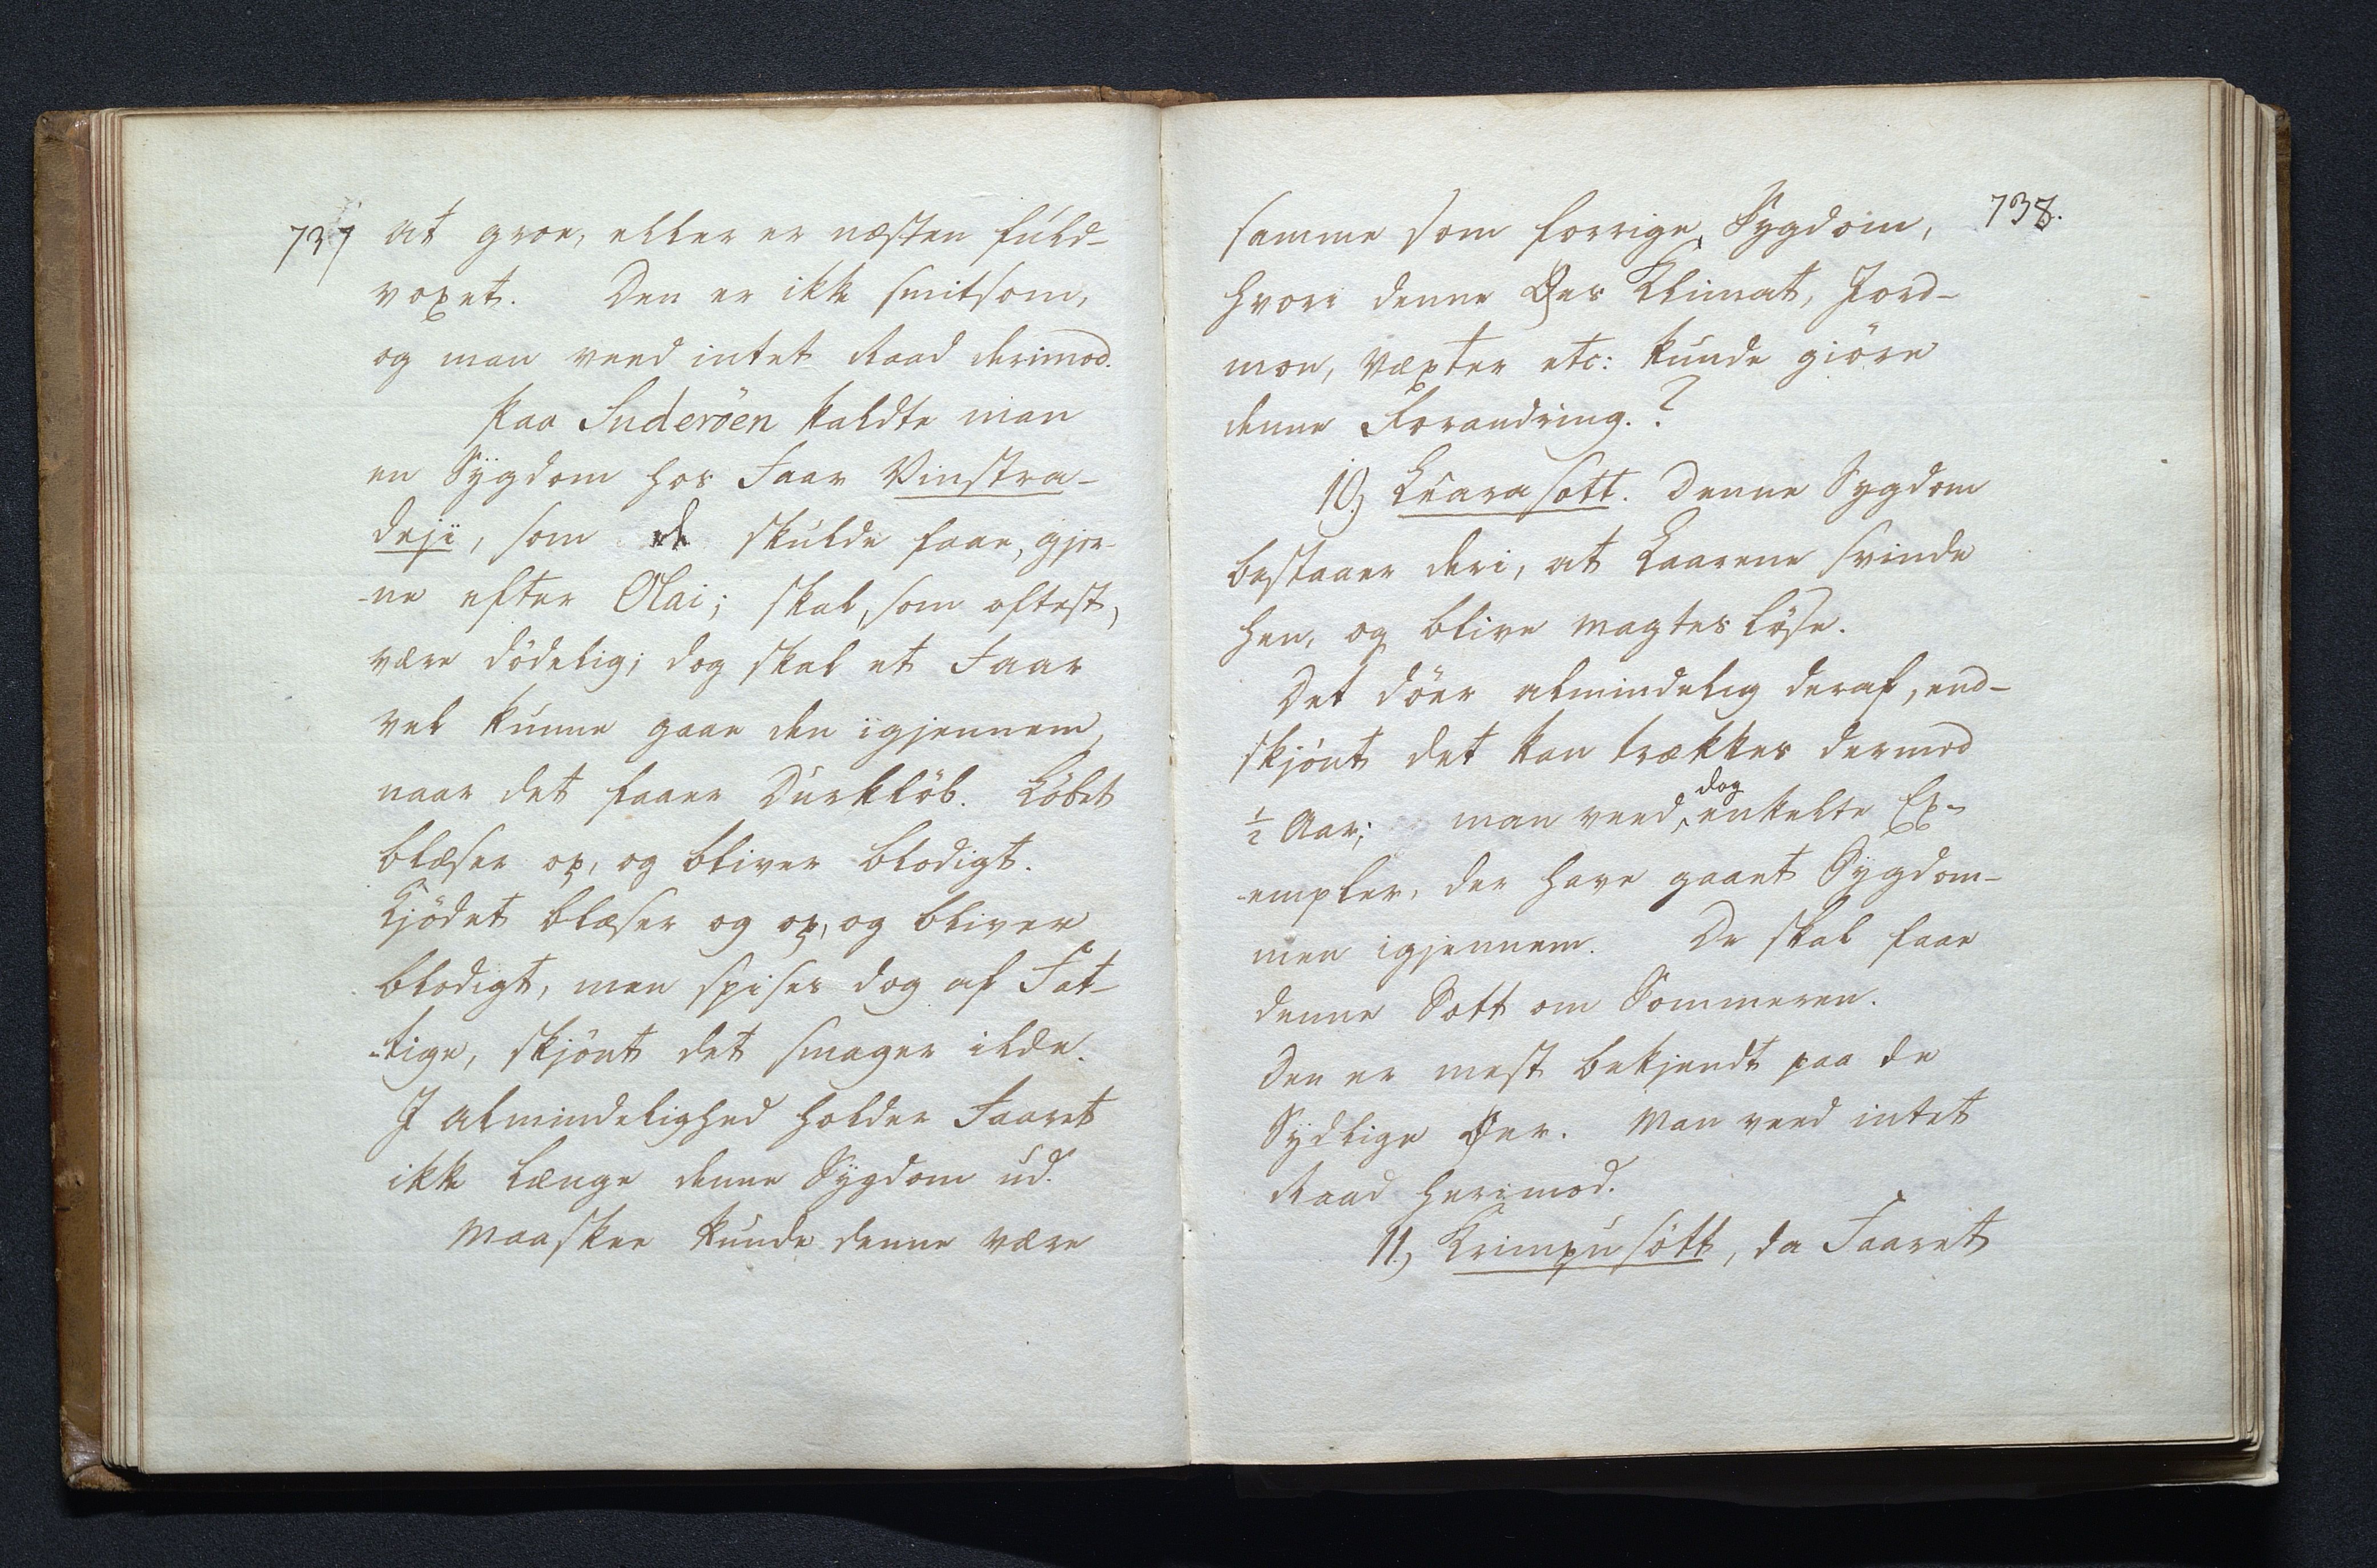 737
at groe, eller er næsten fuld-
voxet. Den er ikke smitsom,
og man veed intet Raad derimod.
Paa Suderöen kaldte man
en Sygdom hos Faar Vinstra-
deji, som de skulde faae, gjer-
-ne efter Olai; skal, som oftest,
være dödelig; dog skal et Faar
vel kunne gaae den igjennem,
naar det faaer Durklöb. Löbet
blæser op, og bliver blodigt.
Kjödet blæser og op, og bliver
blodigt, men spises dog af Fat-
-tige, skjönt det smager ilde.
I Almindelighed holder Faaret
ikke længe denne Sygdom ud.
Maaskee kunde denne være
738.
samme som forrige Sygdom,
hvori denne Øes Klimat, Jord-
mon, Væxter etc: kunde giöre
denne Forandring.?
10) Luara sott. Denne Sygdom
bestaaer deri, at Laarene svinde
hen, og blive magteslöse.
Det döer almindelig deraf, end-
skjönt det kan trækkes dermed
½ Aar; man veed dog enkelte Ex-
-empler, der have gaaet Sygdom-
men igjennem. De skal faae
denne Sott om Sommeren.
Den er mest bekjendt paa de
Sydlige Øer. Man veed intet
Raad herimod.
11.) Krimpu sött, da Faaret